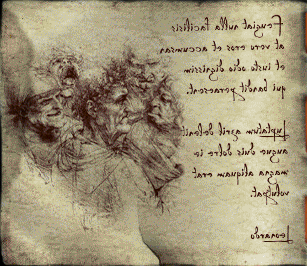 Feugiat nulla facilisis
at vero eros et accumsan
et iusto odio dignissim
qui blandit praesent.
Luptatum zzril delenit
augue duis dolore te
magna aliquam erat
volutpat.
Leonardo